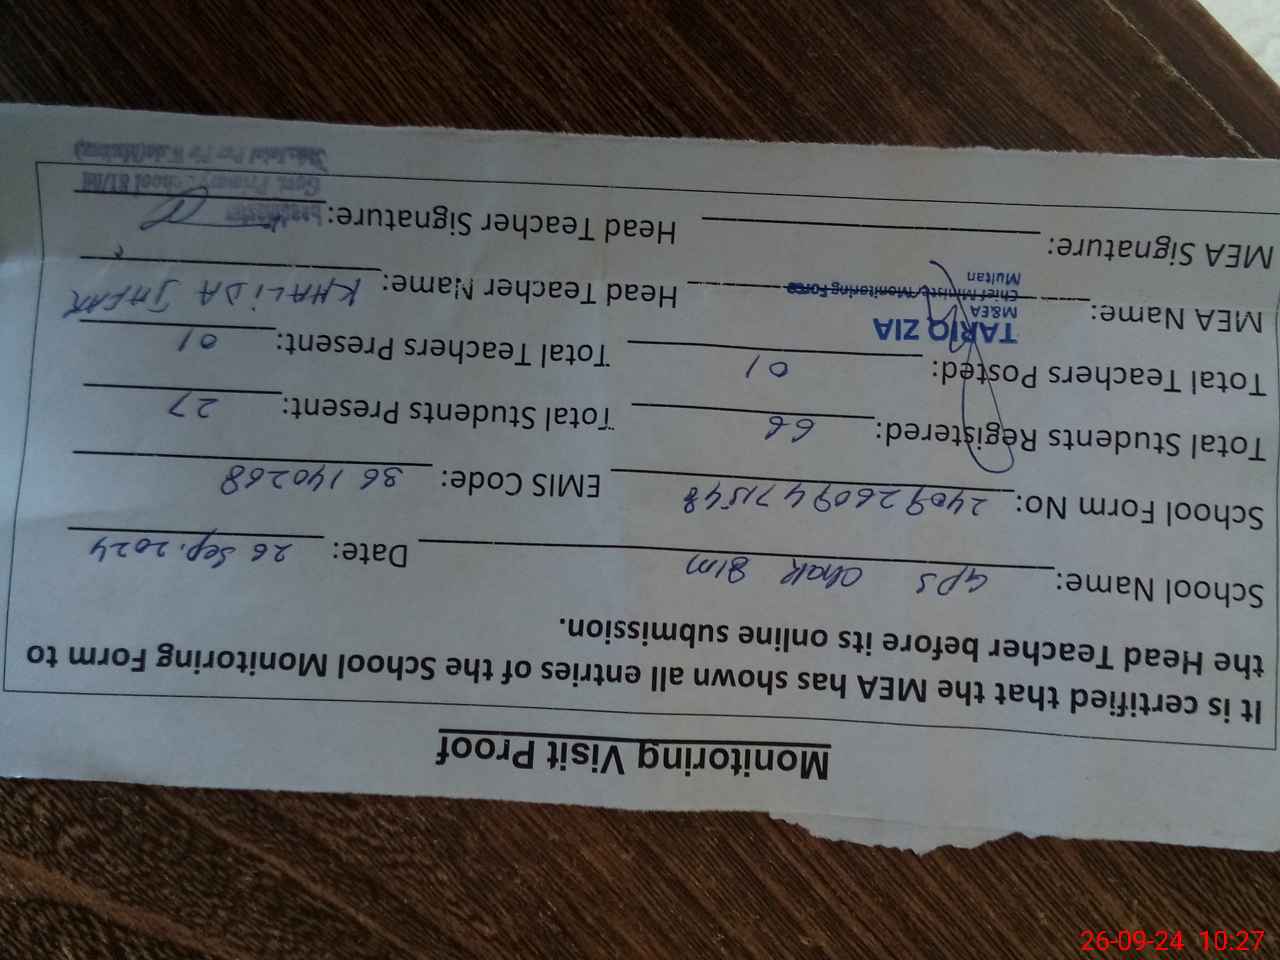 Monitoring Visit Proof
It is certified that the MEA has shown all entries of the School Monitoring Form to
the Head Teacher before its online submission.
School Name: GPS Chak 81M Date: 26 Sep. 2024
School Form No: 24092609471548 EMIS Code: 36140268
Total Students Registered: 66 Total Students Present: 27
Total Teachers Posted: 01 Total Teachers Present: 01
TARIQ ZIA
M&EA
Chief Minister Monitoring Force
Multan
MEA Name: Head Teacher Name: KHALIDA
MEA Signature: Head Teacher Signature:
Headmaster
Govt. Primary School 81/M
26-09-24 10:27